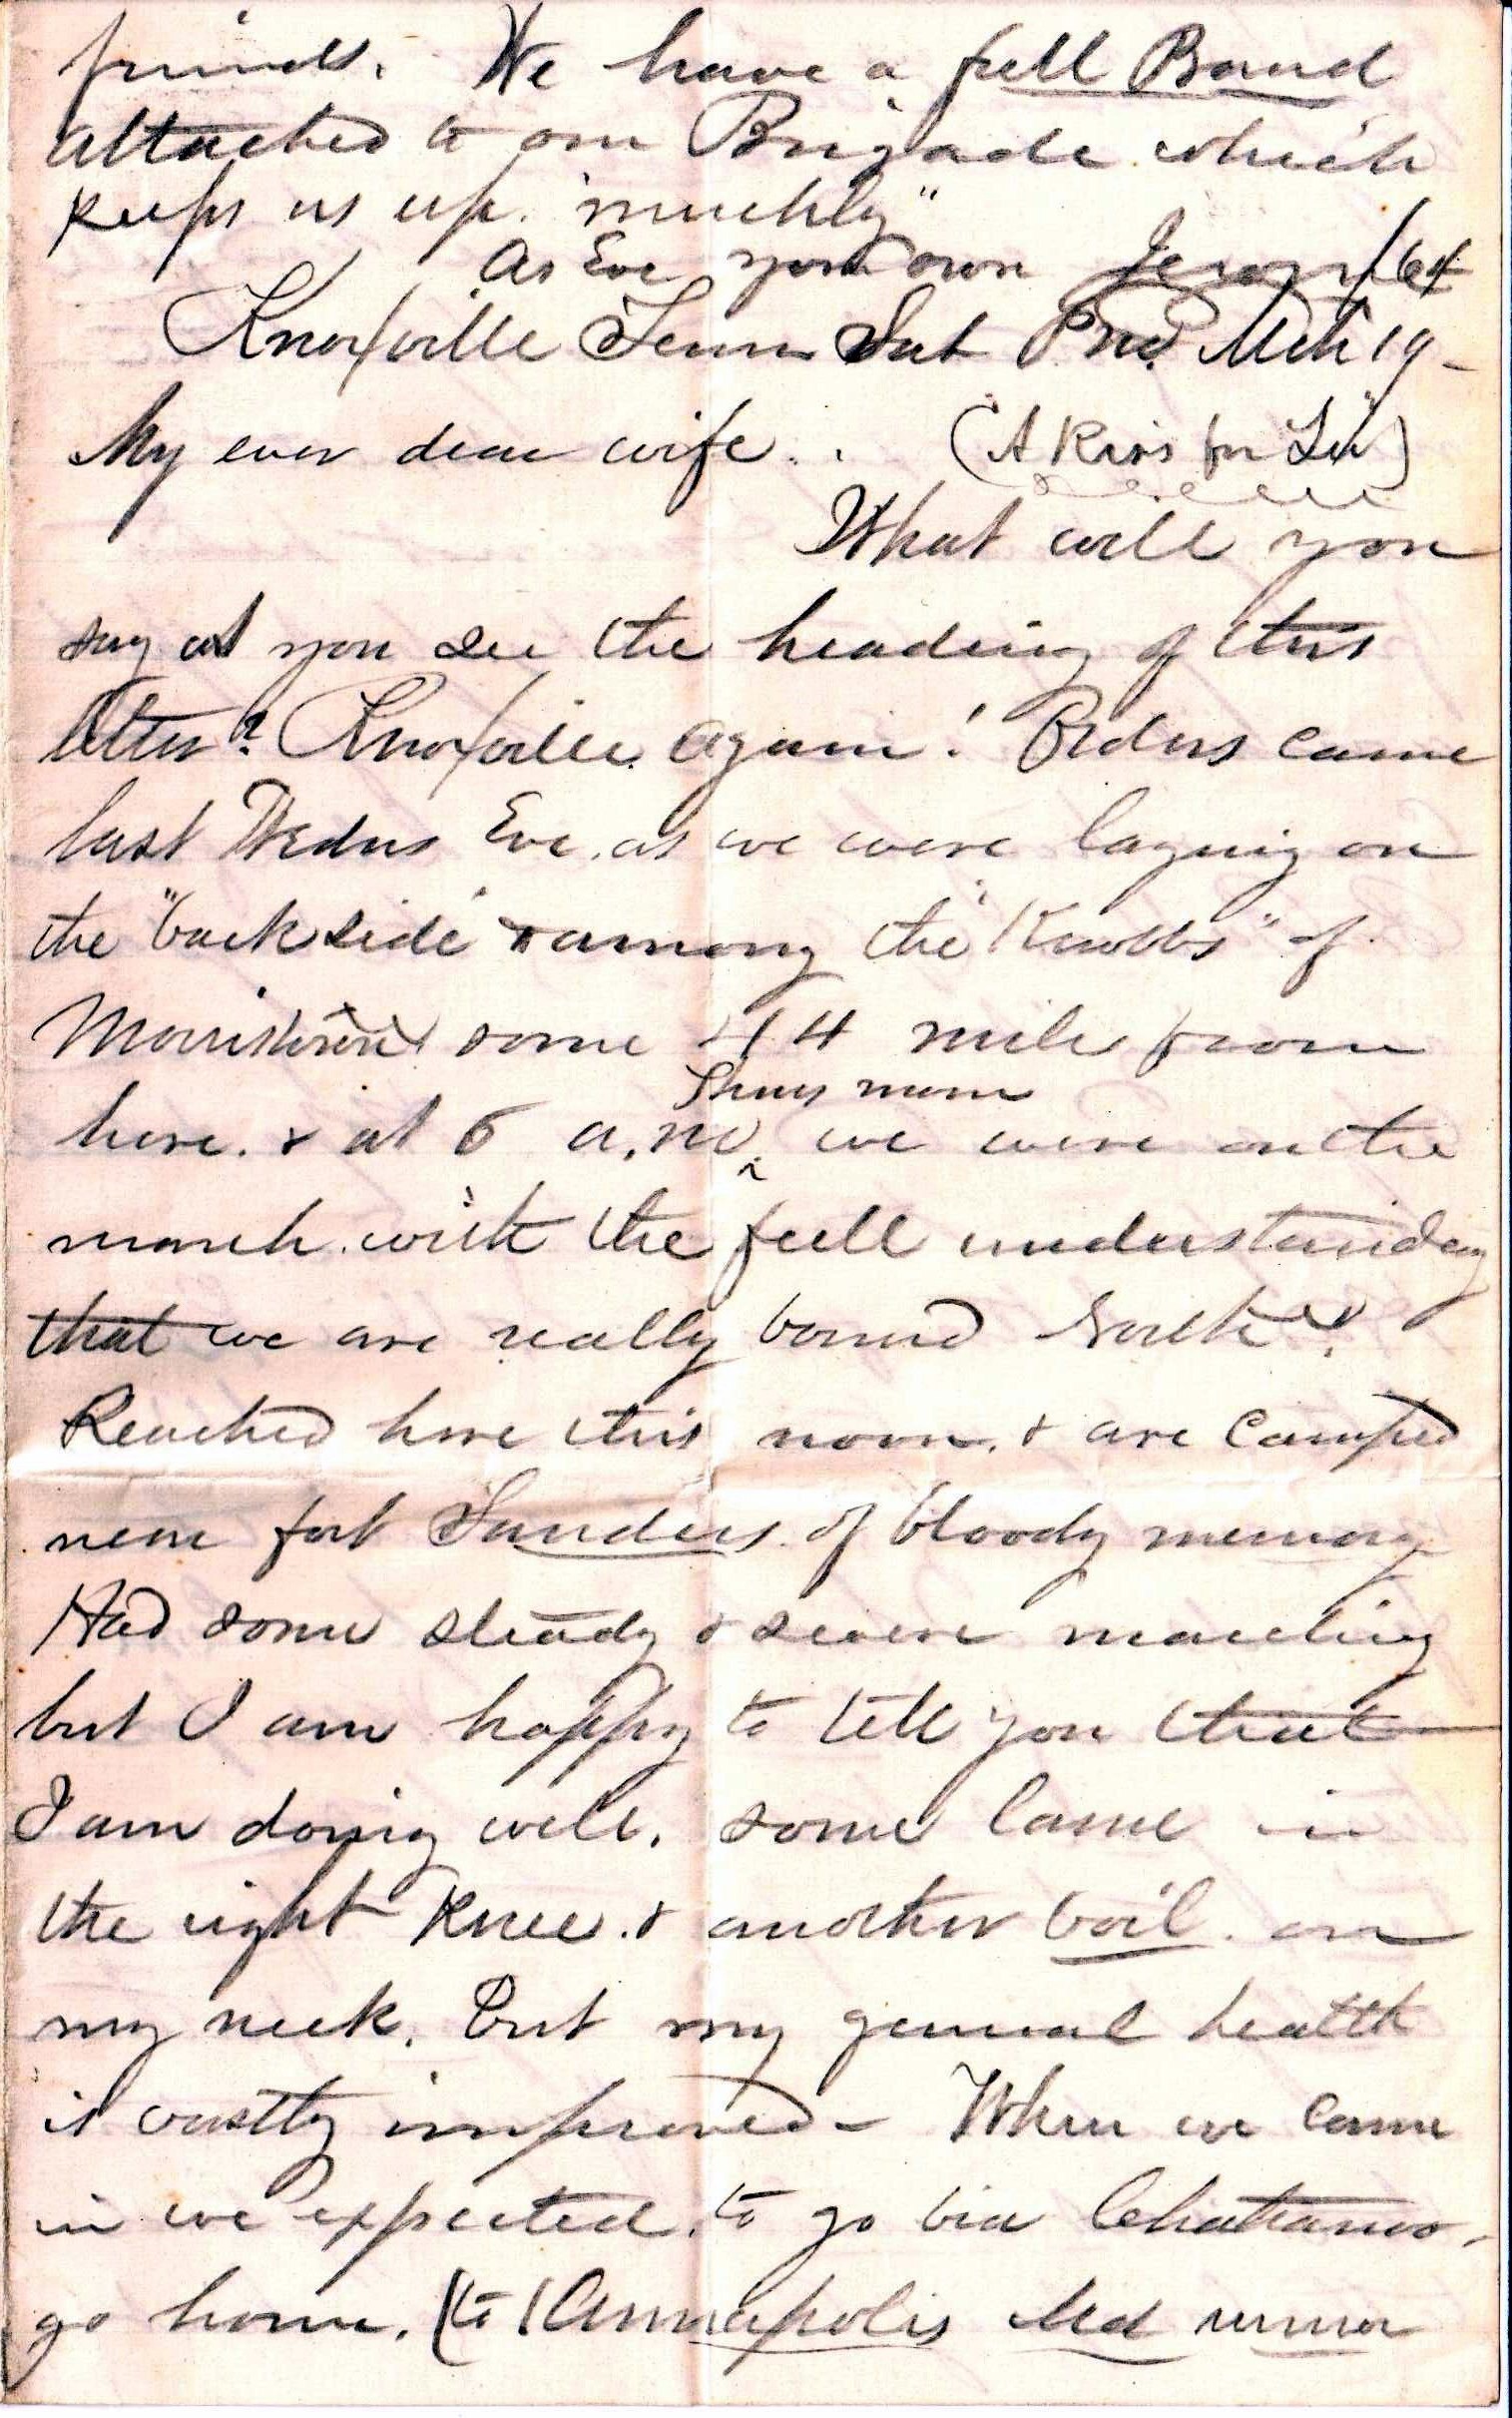 friends. We have a full Band
attached to our Brigade which
keeps us up. "muchly"
As Eve your own Jerome
Knoxville Tenn Sat P.M. Mch 19 - /64
My ever dear wife. . ("A Kiss for Lu")
What will you
say as you see the heading of this
letter? Knoxville again! Orders came
last Wedns Eve. as we were laying on
the "back side" & among the "Knobbs" of
Morristown some 44 mile from
here. & at 6 a.m. Thurs morn we were on the
march. with the full understanding
that we are really bound North!
Reached here this noon. & are camped
near fort Sanders. of bloody memory
Had some steady & severe marching
but I am happy to tell you that
I am doing well. some lame in
the right Knee. & another boil. on
my neck. But my general health
is vastly improved - When we came
in we expected. to go via Chattanoo-
go home. (to Annapolis Md rumor